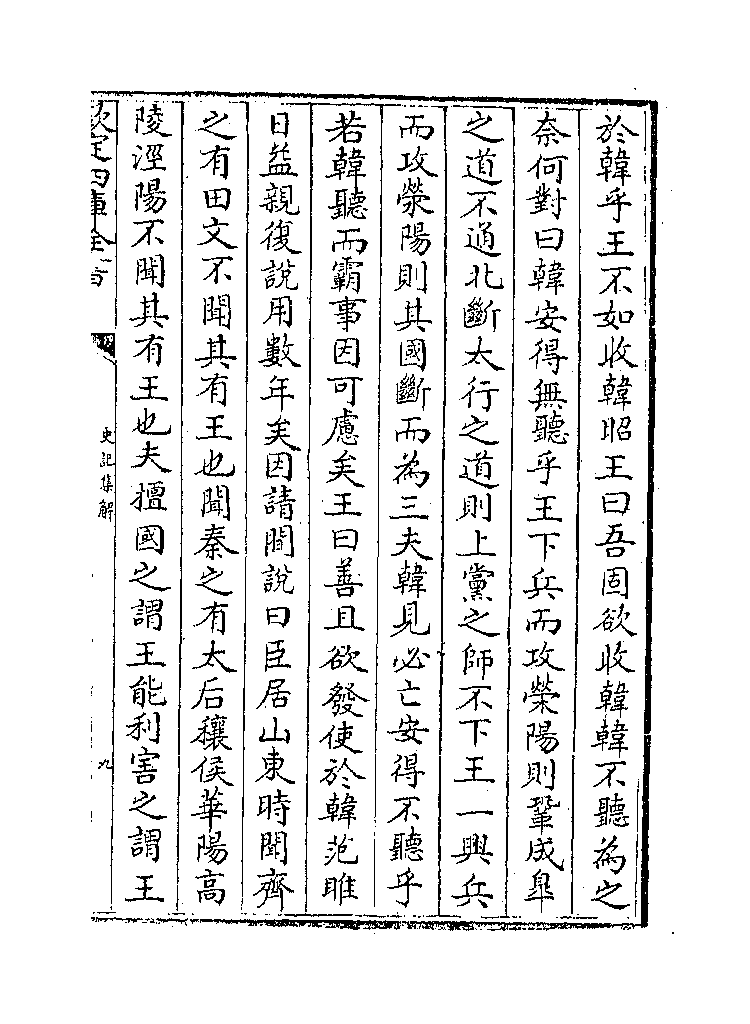 於韓乎王不如收韓昭王曰吾固欲收韓韓不聽為之
奈何對曰韓安得無聽乎王下兵而攻滎陽則鞏成臯
之道不通北斷太行之道則上黨之師不下王一興兵
而攻滎陽則其國斷而為三夫韓見必亡安得不聽乎
若韓聽而霸事因可慮矣王曰善且欲發使於韓范雎
日益親復說用數年矣因請間說曰臣居山東時聞齊
之有田文不聞其有王也聞秦之有太后穰侯華陽高
陵涇陽不聞其有王也夫擅國之謂王能利害之謂王
欽定四庫全書
史記集解
九